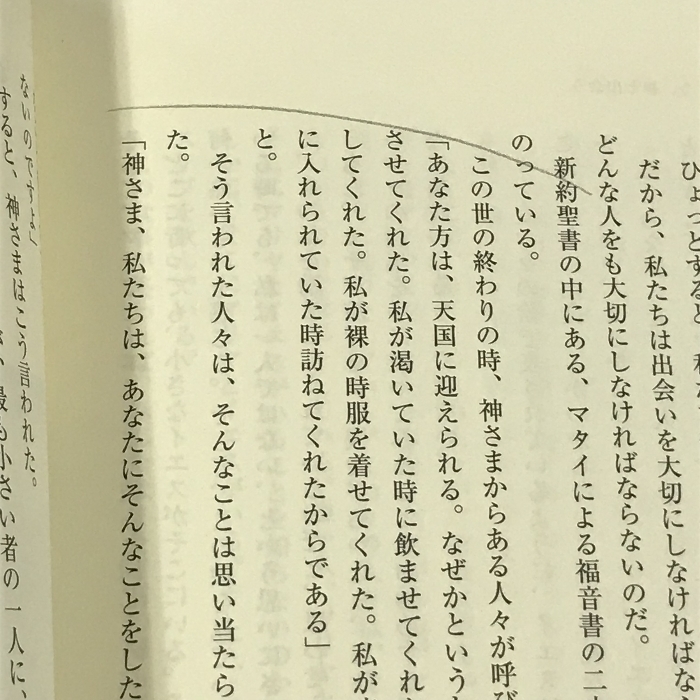 ひょっとすると、私
だから、私たちは出会いを大切にしなければな
どんな人をも大切にしなければならないのだ。
新約聖書の中にある、マタイによる福音書の二
のっている。
この世の終わりの時、神さまからある人々が呼び
「あなた方は、天国に迎えられる。なぜかという
させてくれた。私が渇いていた時に飲ませてくれ
してくれた。私が裸の時服を着せてくれた。私が
に入れられていた時訪ねてくれたからである」
と。
そう言われた人々は、そんなことは思い当たら
た。
「神さま、私たちは、あなたにそんなことをした
ないのですよ」
すると、神さまはこう言われた。
最も小さい者の一人に、